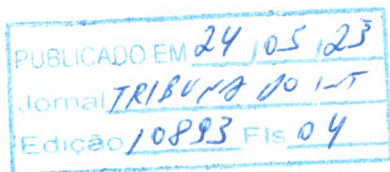 PUBLICADO EM 24 / 05 / 23
Jornal TRIBUNA DO INT
Edição 10893 Fls 04